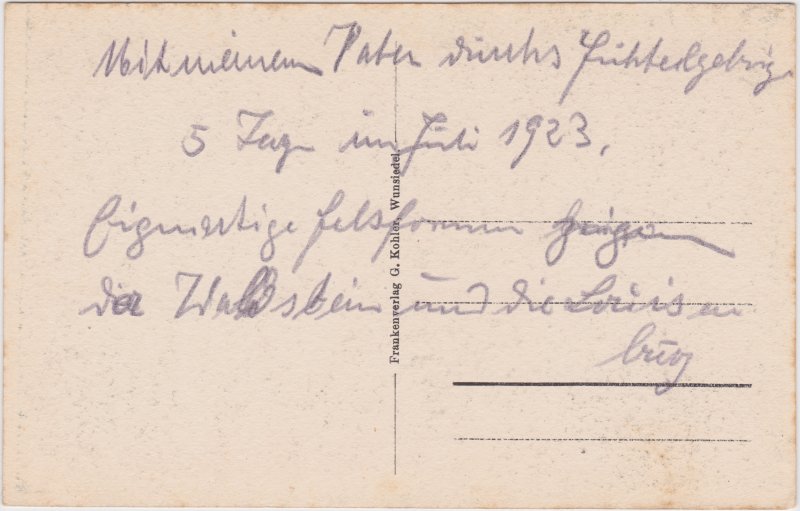 Mit meinem Vater durchs Fichtelgebirge
5 Tage im Juli 1923.
Eigenartige Felsformen zeigen
der Waldstein und die Louisen
burg
Frankenverlag G. Kohler, Wunsiedel.